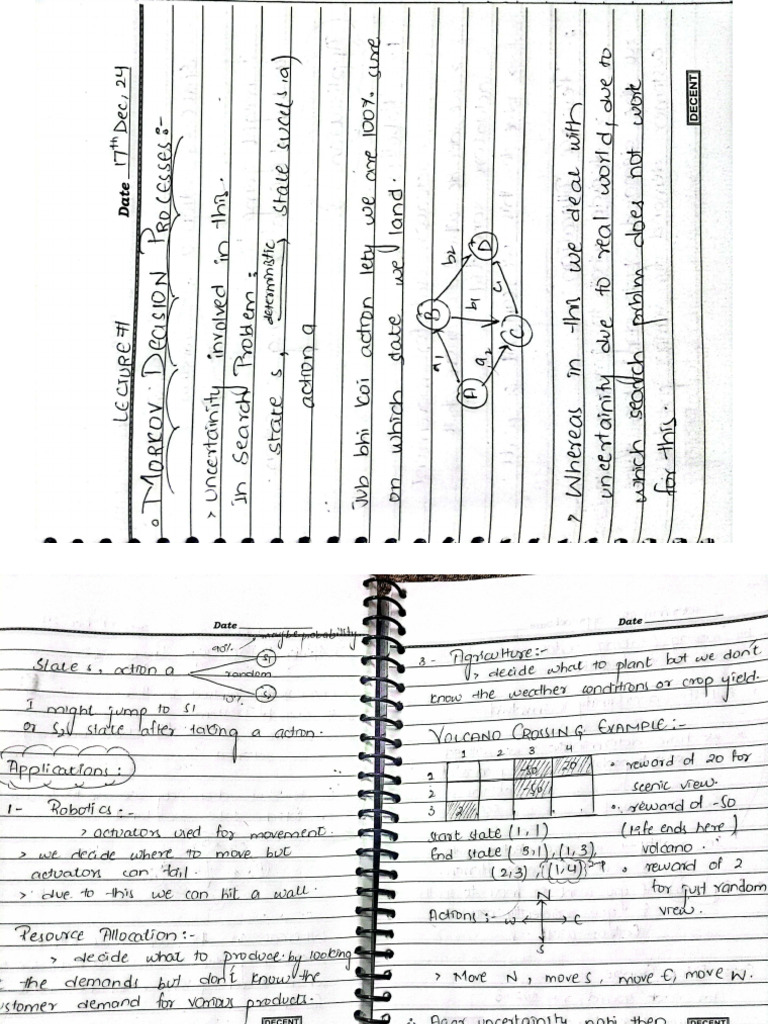 LECTURE #1
Date 17th Dec, 24
• MORKOV DECISION PROCESSES :-
> Uncertainity involved in this.
In Search Problem :
state s, deterministic state succ(s,a)
action a
jub bhi koi action lety we are 100% sure
on which state we land.
B
a1 b1 b2
A D
a2 c1
C
> Whereas in this we deal with
uncertainity due to real world, due to
which search problm does not work
for this.
DECENT
Date
90% maybe probability
State s, action a s1
random
10% s2
I might jump to s1
or s2 state after taking a action.
Applications :
1- Robotics :-
> actuators used for movement.
> we decide where to move but
actuators can fail.
> due to this we can hit a wall.
Resource Allocation :-
> decide what to produce by looking
the demands but don't know the
ustomer demand for various products.
DECENT
Date
3- Agriculture :-
> decide what to plant but we don't
know the weather conditions or crop yield.
VOLCANO CROSSING EXAMPLE :-
1 2 3 4
1 -50 20
2 -50
3 2
• reward of 20 for
scenic view.
• reward of -50
(life ends here)
volcano.
• reward of 2
for just random
view.
Start state (1,1)
End state (3,1), (1,3),
(2,3), (1,4)
Actions :- N W E S
> Move N, move S, move E, move W.
Agar uncertainity nahi then
DECENT